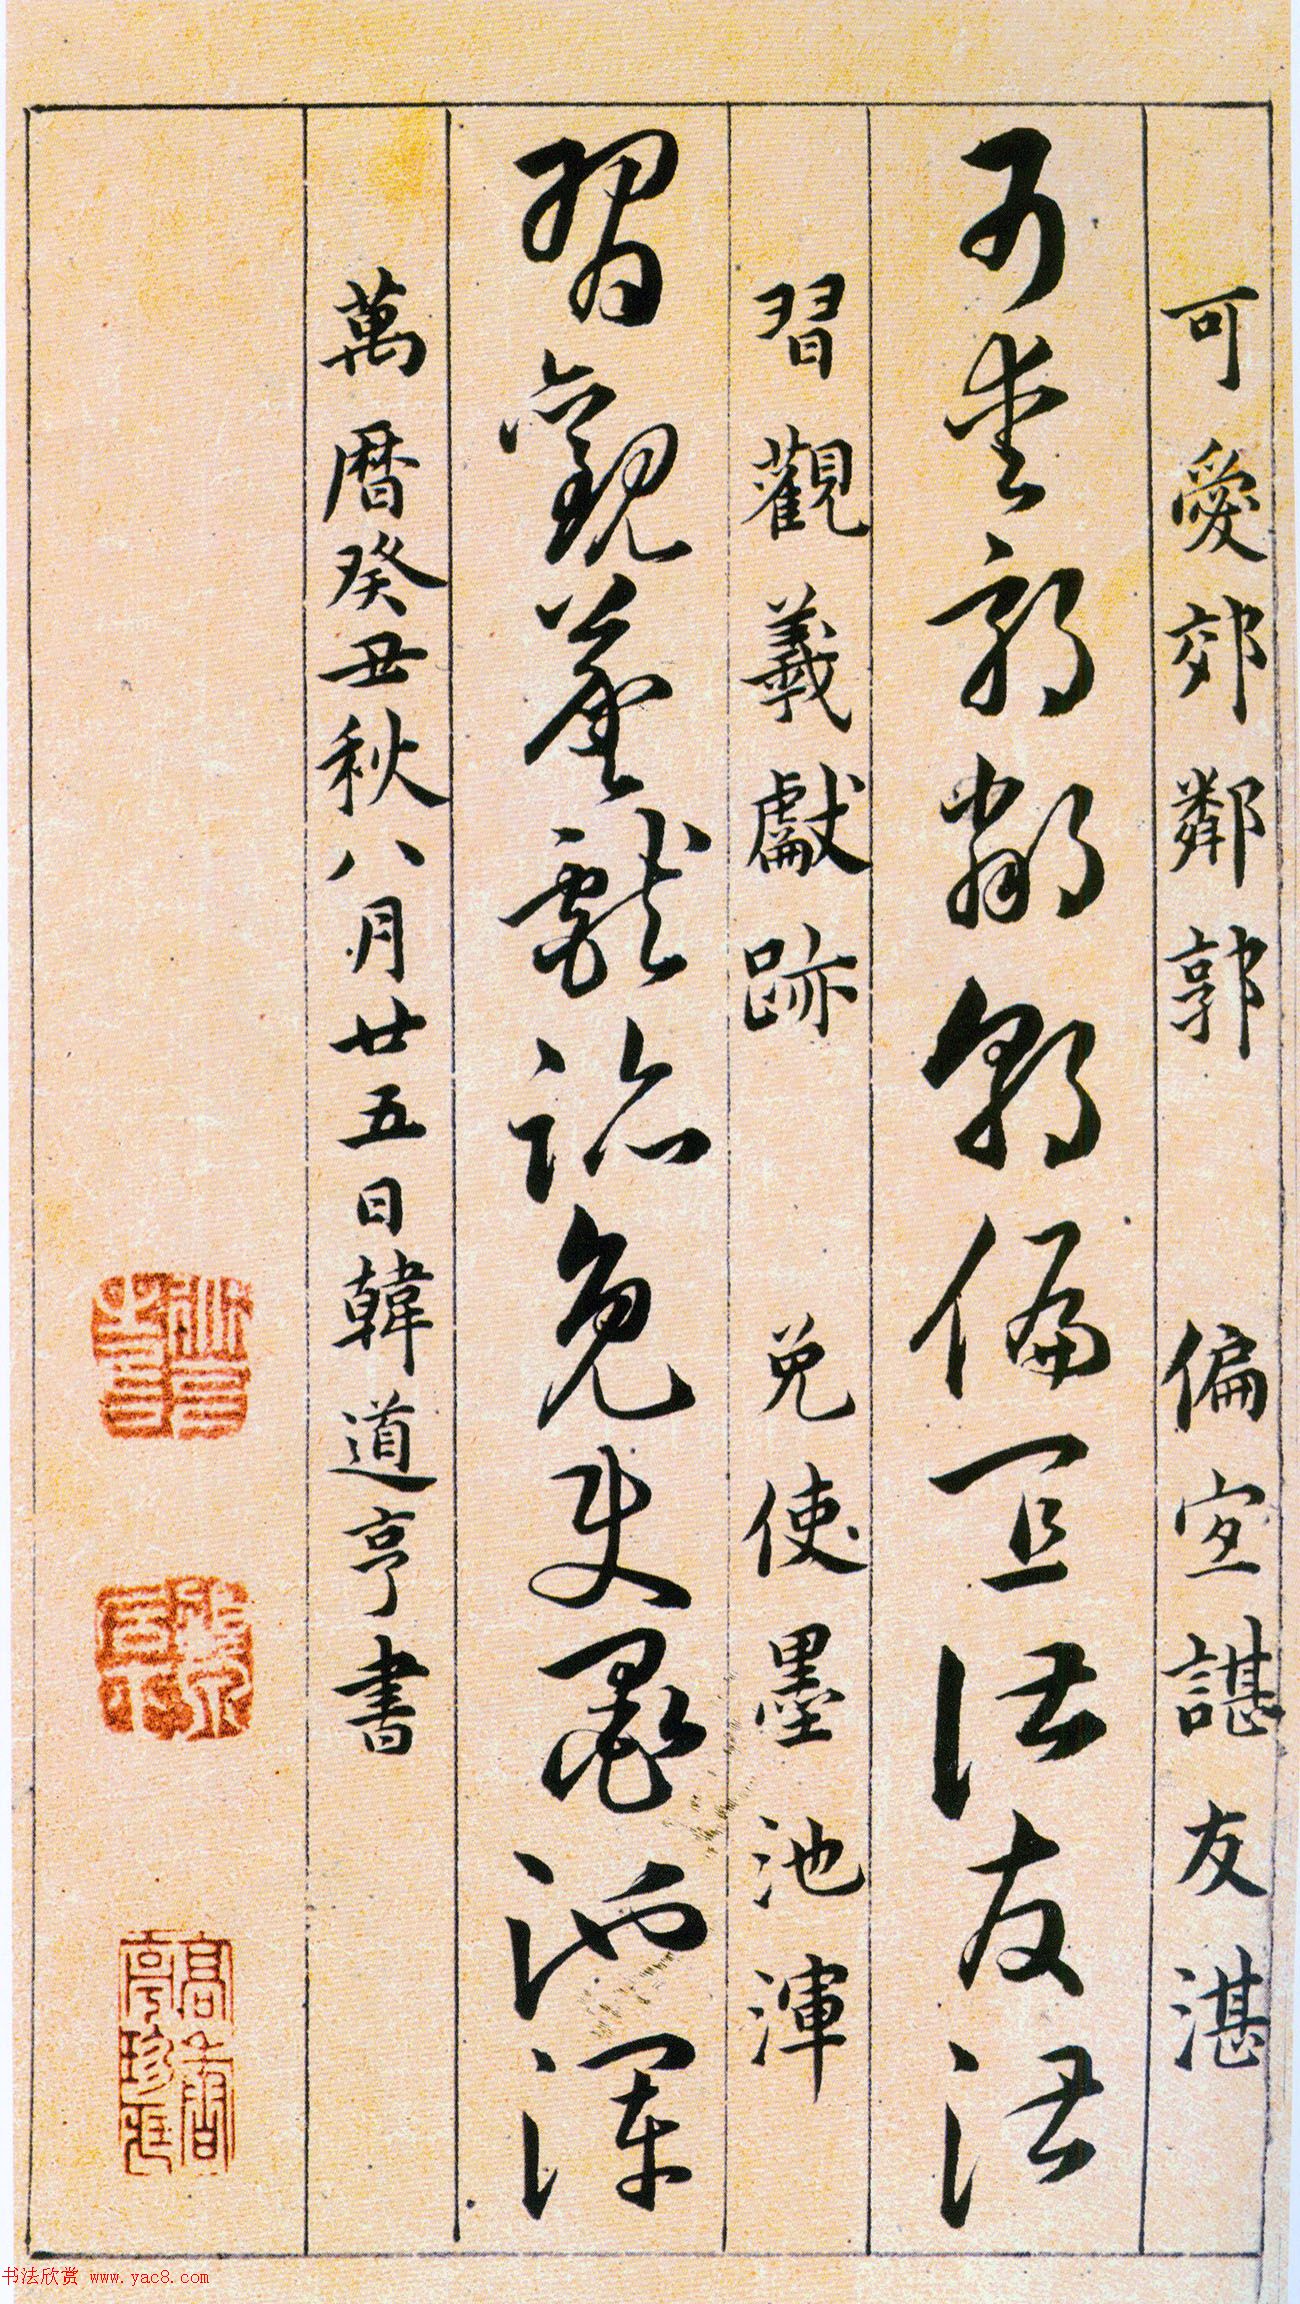 可愛郊鄰郭 偏宜諶友湛
可愛郊鄰郭偏宜諶友湛
習觀羲獻跡 免使墨池渾
習觀羲獻跡免使墨池渾
萬曆癸丑秋八月廿五日韓道亨書
書法欣赏 www.yac8.com